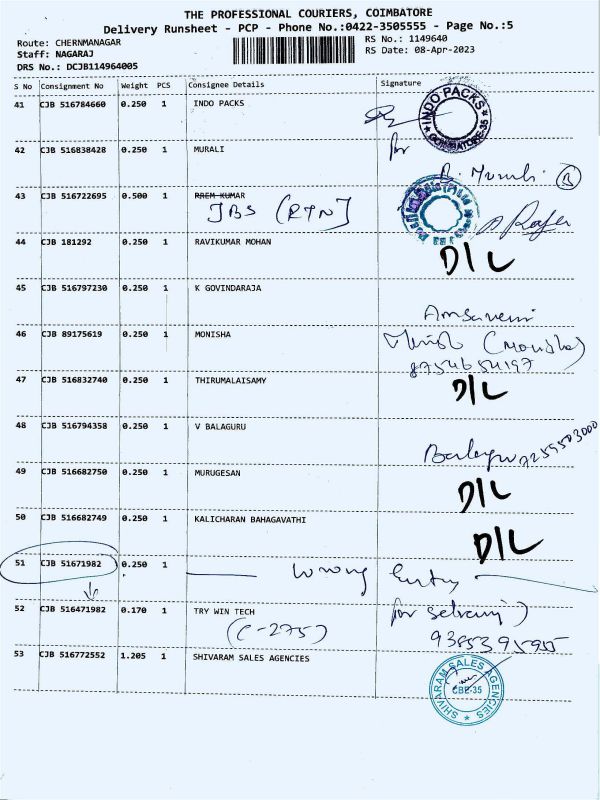 THE PROFESSIONAL COURIERS, COIMBATORE
Delivery Runsheet - PCP - Phone No.:0422-3505555 - Page No.:5
Route: CHERNMANAGAR
RS No.: 1149640
Staff: NAGARAJ
RS Date: 08-Apr-2023
DRS No.: DCJB114964005
S No Consignment No Weight PCS Consignee Details Signature
41 CJB 516784660 0.250 1 INDO PACKS
INDO PACKS COIMBATORE-35
for
42 CJB 516838428 0.250 1 MURALI
B. Murali B
43 CJB 516722695 0.500 1 PREM KUMAR
JBS (RTN)
44 CJB 181292 0.250 1 RAVIKUMAR MOHAN
D/L
45 CJB 516797230 0.250 1 K GOVINDARAJA
Amsaveni
46 CJB 89175619 0.250 1 MONISHA
(Monisha)
8754654197
47 CJB 516832740 0.250 1 THIRUMALAISAMY
D/L
48 CJB 516794358 1 0.250 V BALAGURU
Balaguru
49 CJB 516682750 0.250 1 MURUGESAN
D/L
50 CJB 516682749 0.250 1 KALICHARAN BAHAGAVATHI
D/L
51 CJB 51671982 0.250 1 Wrong Entry
52 CJB 516471982 0.170 1 TRY WIN TECH
for Selvaraj
(C-275)
9385395955
53 CJB 516772552 1.205 1 SHIVARAM SALES AGENCIES
SHIVARAM SALES AGENCIES
CBE-35